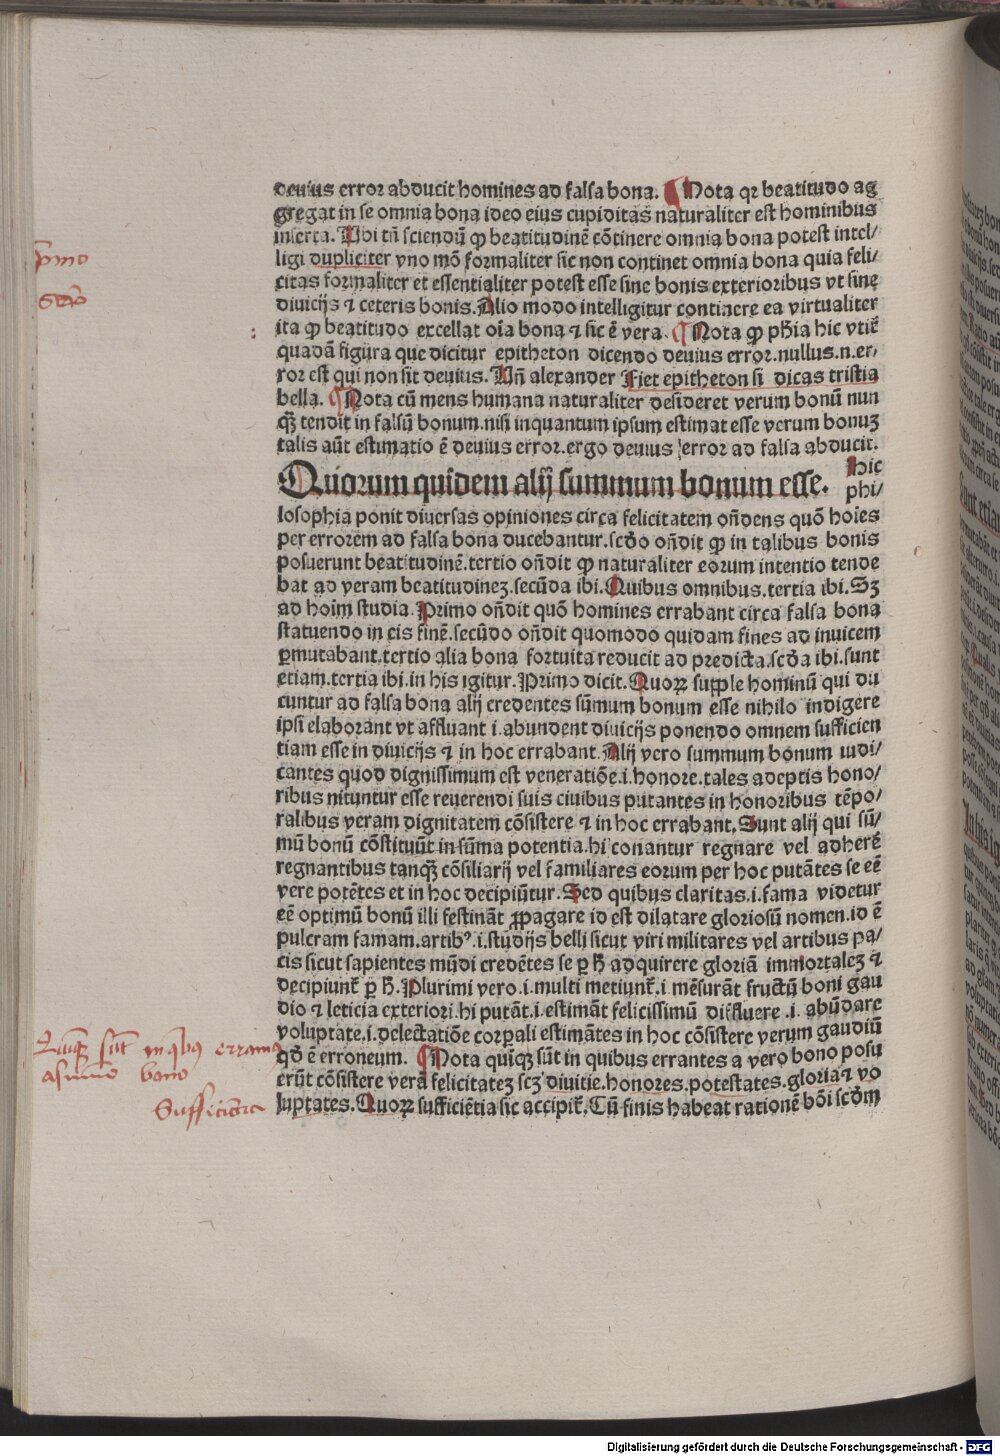 deuius error abducit homines ad falsa bona. ¶ Nota qꝛ beatitudo ag
gregat in se omnia bona ideo eius cupiditas naturaliter est hominibus
inserta. Ubi tñ sciendū ꝙ beatitudinē cōtinere omnia bona potest intel/
ligi dupliciter vno mō formaliter sic non continet omnia bona quia feli/
citas formaliter et essentialiter potest esse sine bonis exterioribus vt sine
diuicijs ⁊ ceteris bonis. Alio modo intelligitur continere ea virtualiter
ita ꝙ beatitudo excellat oīa bona ⁊ sic ē vera. ¶ Nota ꝙ pħia hic vtiť
quadā figura que dicitur epitheton dicendo deuius error. nullus .n. er/
ror est qui non sit deuius. Uñ alexander Fiet epitheton si dicas tristia
bella. ¶ Nota cū mens humana naturaliter desideret verum bonū nun
qꝫ tendit in falsū bonum. nisi inquantum ipsum estimat esse verum bonuꝫ
talis aūt estimatio ē deuius error. ergo deuius error ad falsa abducit.
Quorum quidem alij summum bonum esse. Hic
phi/
losophia ponit diuersas opiniones circa felicitatem oñdens quō hoīes
per errorem ad falsa bona ducebantur. scďo oñdit ꝙ in talibus bonis
posuerunt beatitudinē. tertio oñdit ꝙ naturaliter eorum intentio tende
bat ad veram beatitudineꝫ. secūda ibi. Quibus omnibus. tertia ibi. Sꝫ
ad hoīm studia. Primo oñdit quō homines errabant circa falsa bona
statuendo in eis finē. secūdo oñdit quomodo quidam fines ad inuicem
ꝑmutabant. tertio alia bona fortuita reducit ad predicta. scďa ibi. sunt
etiam. tertia ibi. in his igitur. Primo dicit. Quoꝝ supple hominū qui du
cuntur ad falsa bona alij credentes sūmum bonum esse nihilo indigere
ipsi elaborant vt affluant .i. abundent diuicijs ponendo omnem sufficien
tiam esse in diuicijs ⁊ in hoc errabant. Alij vero summum bonum iudi/
cantes quod dignissimum est veneratiōe .i. honore. tales adeptis hono/
ribus nituntur esse reuerendi suis ciuibus putantes in honoribus tēpo/
ralibus veram dignitatem cōsistere ⁊ in hoc errabant. Sunt alij qui sū/
mū bonū cōstituūt in sūma potentia. hi conantur regnare vel adherē
regnantibus tanqꝫ cōsiliarij vel familiares eorum per hoc putātes se eē
vere potētes et in hoc decipiūtur. Sed quibus claritas .i. fama videtur
eē optimū bonū illi festināt ꝓpagare id est dilatare gloriosū nomen. id ē
pulcram famam. artibꝰ .i. studijs belli sicut viri militares vel artibus pa/
cis sicut sapientes mūdi credētes se ꝑ ħ adquirere gloriā immortaleꝫ ⁊
decipiunť ꝑ ħ. Plurimi vero .i. multi metiunť .i. mēsurāt fructū boni gau
dio ⁊ leticia exteriori. hi putāt .i. estimāt felicissimū diffluere .i. abūdare
voluptate .i. delectatiōe corꝑali estimātes in hoc cōsistere verum gaudiū
qď ē erroneum. ¶ Nota quīqꝫ sūt in quibus errantes a vero bono posu
erūt cōsistere verā felicitateꝫ scꝫ diuitie. honores. potestates. gloria ⁊ vo
luptates. Quoꝝ sufficiētia sic accipiť. Cū finis habeat rationē bōi scďm
pmo
scďo
Quīqꝫ sūt in qbus erramus
a summo bono
Sufficientia
Digitalisierung gefördert durch die Deutsche Forschungsgemeinschaft - DFG